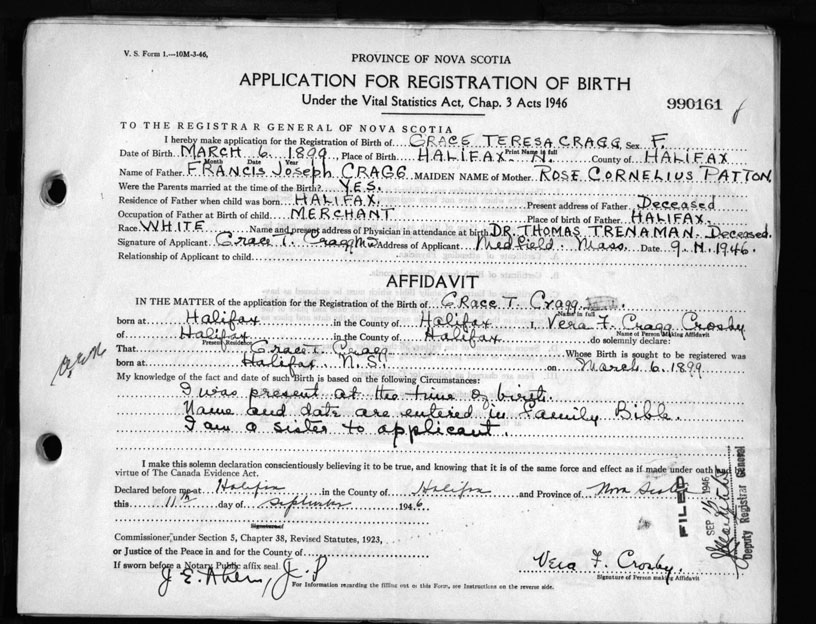 V. S. Form 1.—10M-3-46.
PROVINCE OF NOVA SCOTIA
APPLICATION FOR REGISTRATION OF BIRTH
Under the Vital Statistics Act, Chap. 3 Acts 1946
990161
TO THE REGISTRAR GENERAL OF NOVA SCOTIA
I hereby make application for the Registration of Birth of GRACE TERESA CRAGG Sex F.
Print Name in full
Date of Birth MARCH 6. 1899, Place of Birth HALIFAX N. County of HALIFAX
Month Date Year
Name of Father FRANCIS JOSEPH CRAGG MAIDEN NAME of Mother ROSE CORNELIUS PATTON
Were the Parents married at the time of the Birth? YES.
Residence of Father when child was born HALIFAX Present address of Father Deceased
Occupation of Father at Birth of child MERCHANT Place of birth of Father HALIFAX
Race WHITE Name and present address of Physician in attendance at birth DR. THOMAS TRENAMAN - Deceased.
Signature of Applicant Grace T. Cragg Address of Applicant Medfield. Mass. Date 1946.
Relationship of Applicant to child
AFFIDAVIT
IN THE MATTER of the application for the Registration of the Birth of GRACE T. Cragg
Name in full
born at Halifax in the County of Halifax I, Vera F. Cragg Crosby
Name of Person Making Affidavit
of Halifax in the County of Halifax do solemnly declare:
Present Residence
That Grace T. Cragg Whose Birth is sought to be registered was
born at Halifax N. S. on March. 6. 1899
My knowledge of the fact and date of such Birth is based on the following Circumstances:
I was present at the time of birth.
Name and date are entered in Family Bible.
I am a sister to applicant.
I make this solemn declaration conscientiously believing it to be true, and knowing that it is of the same force and effect as if made under oath and by
virtue of The Canada Evidence Act.
Declared before me at Halifax in the County of Halifax and Province of Nova Scotia
this 11th day of September 1946
Signature of
Commissioner under Section 5, Chapter 38, Revised Statutes, 1923,
or Justice of the Peace in and for the County of
If sworn before a Notary Public affix seal
J. E. Ahern, J. P
Vera F. Crosby.
Signature of Person making Affidavit
For Information regarding the filling out of this Form, see Instructions on the reverse side.
FILED
SEP 13 1946
Deputy Registrar General